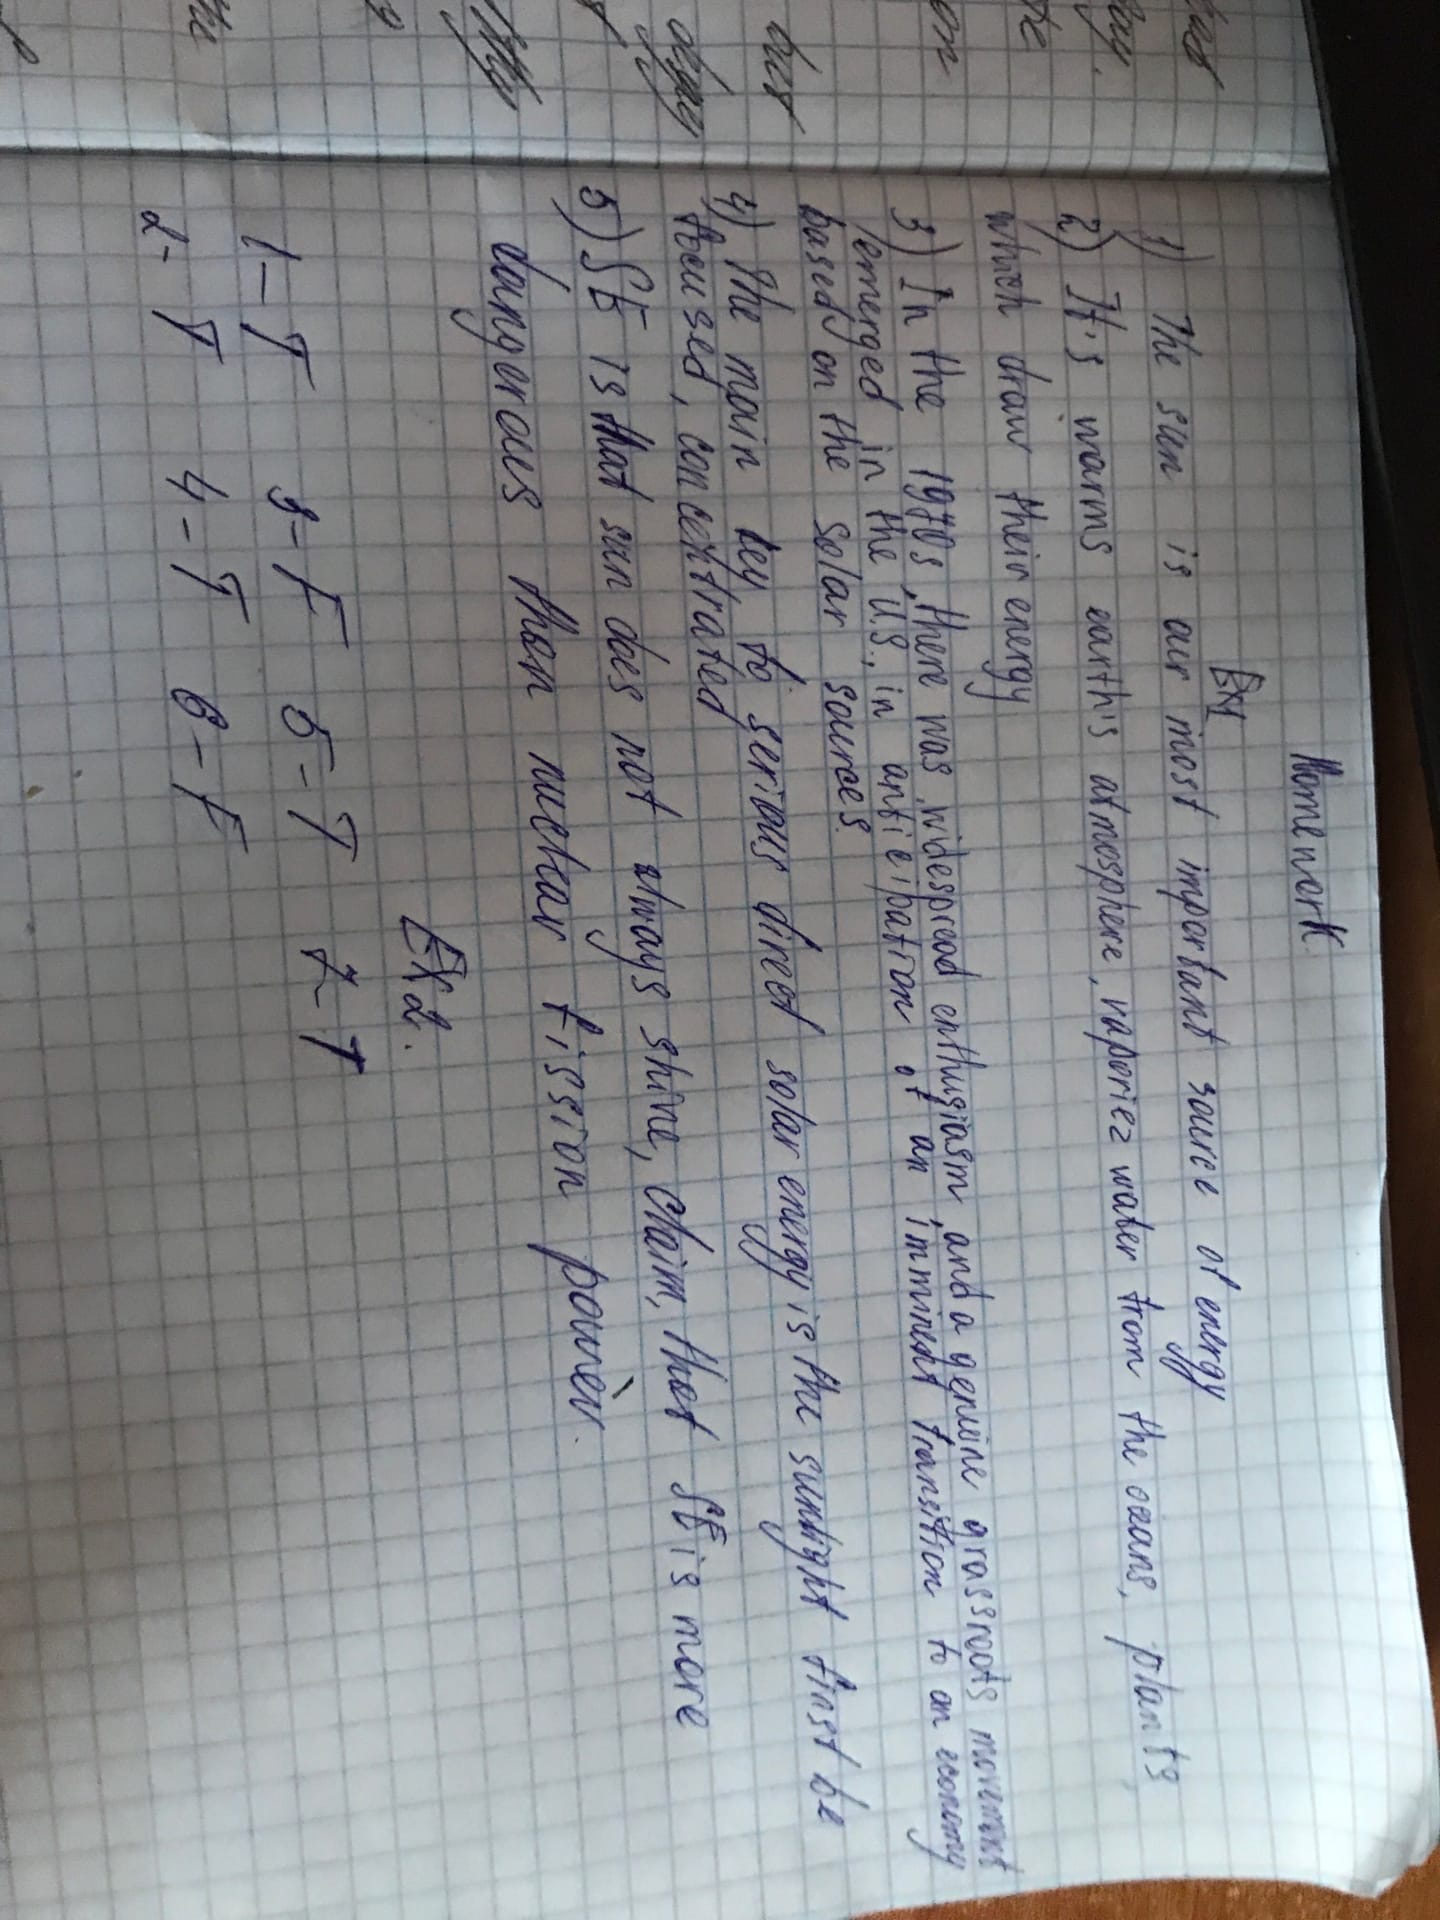 Homework.
Ex1
1) The sun is our most important source of energy
2) It's warms earth's atmosphere, vaporiez water from the oceans, plants,
which draw their energy
3) In the 1970s, there was widespread enthusiasm and a genuine grassroots movement
emerged in the U.S., in anticipation of an imminent transition to an economy
based on the solar sources.
4) The main key to serious direct solar energy is the sunlight first be
focused, concentrated
5) SE is that sun does not always shine, claim, that SE is more
dangerous than nuclear fission power.
Ex2.
1-T 3-F 5-T 7-T
2-T 4-T 6-F